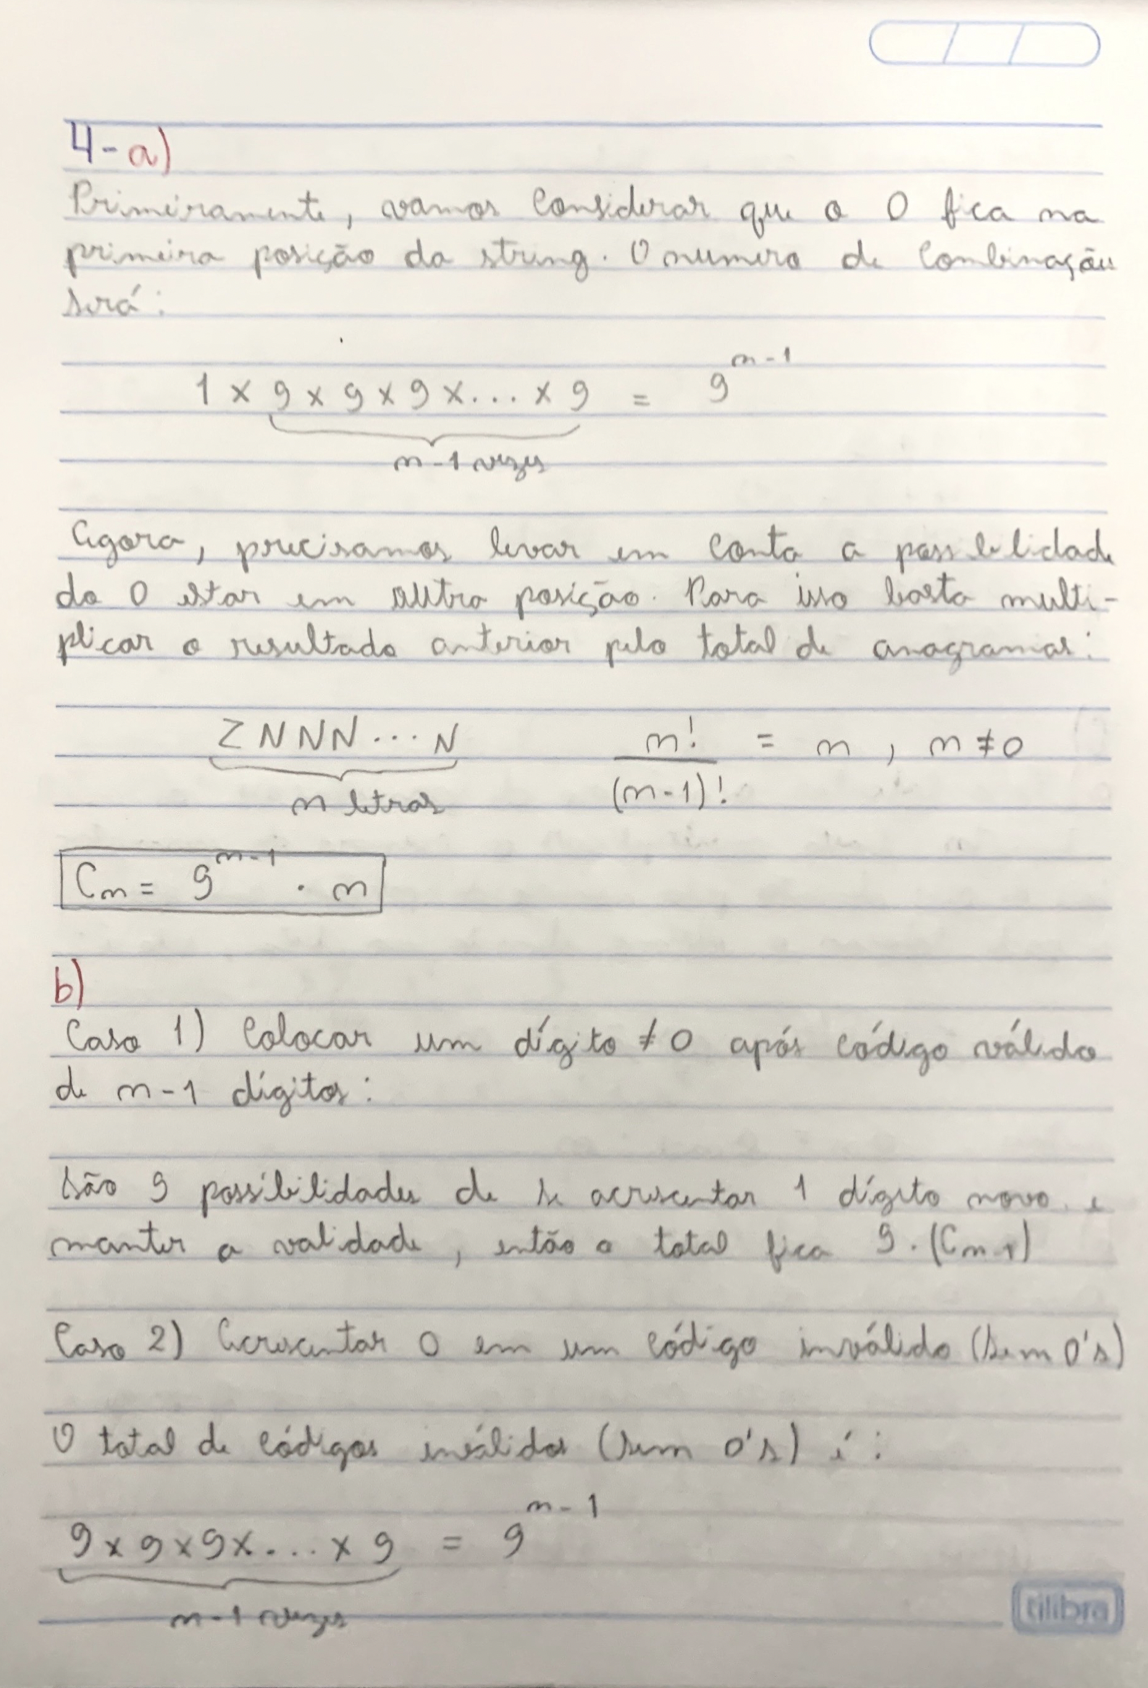 4-a)
Primeiramente, vamos considerar que o 0 fica na
primeira posição da string. O numero de combinação
será:
1 × 9 × 9 × 9 ×...× 9 = 9^{n-1}
n-1 vezes
Agora, precisamos levar em conta a possibilidade
do 0 estar em outra posição. Para isso basta multi-
plicar o resultado anterior pelo total de anagramas:
ZNNN...N n!/(n-1)! = n , n≠0
n letras
Cn = 9^{n-1} · n
b)
Caso 1) Colocar um dígito ≠ 0 após código válido
de n-1 dígitos:
São 9 possibilidades de se acrescentar 1 dígito novo e
manter a validade, então o total fica 9.(Cn-1)
Caso 2) Acrescentar 0 em um código inválido (sem 0's)
O total de códigos inválidos (sem 0's) é:
9×9×9×...×9 = 9^{n-1}
n-1 vezes
tilibra